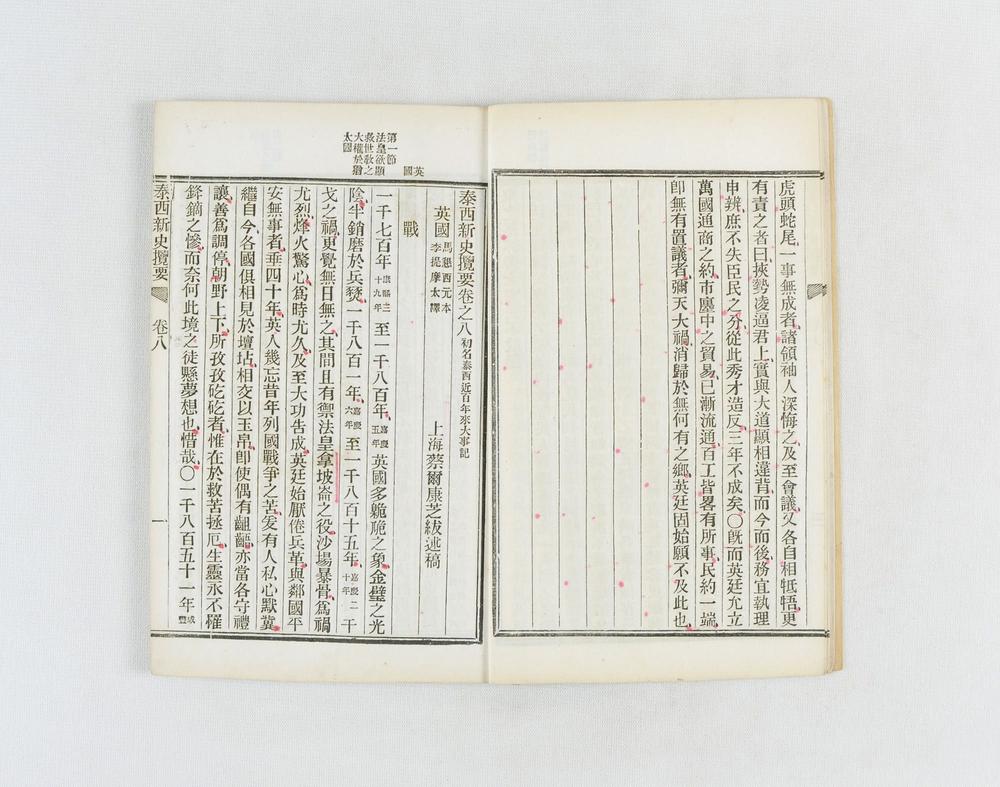 虎頭蛇尾一事無成者諸領袖人深悔之及至會議又各自相牴牾更
有責之者曰挾勢凌逼君上實與大道顯相違背而今而後務宜執理
申辨庶不失臣民之分從此秀才造反三年不成矣〇旣而英廷允立
萬國通商之約市廛中之貿易已漸流通百工皆畧有所事民約一端
卽無有置議者彌天大禍消歸於無何有之鄉英廷固始願不及此也
泰西新史攬要卷之八 初名泰西近百年來大事記
英國 馬懇西元本 李提摩太譯 上海蔡爾康芝紱述稿
戰
英國
第一節
法皇欲顯
救世敎之
大權於猶
太國
一千七百年 康熙三十九年 至一千八百年 嘉慶五年 英國多臲卼之象金璧之光
陰半銷磨於兵燹一千八百一年 嘉慶六年 至一千八百十五年 嘉慶二十年 干
戈之禍更覺無日無之其間且有禦法皇拿坡崙之役沙場暴骨爲禍
尤烈烽火驚心爲時尤久及至大功告成英廷始厭倦兵革與鄰國平
安無事者垂四十年英人幾忘昔年列國戰爭之苦爰有人私心默冀
繼自今各國俱相見於壇坫相交以玉帛卽使偶有齟齬亦當各守禮
讓善爲調停朝野上下所孜孜矻矻者惟在於救苦拯厄生靈永不罹
鋒鏑之慘而奈何此境之徒懸夢想也惜哉〇一千八百五十一年 咸豐
泰西新史攬要 卷八 一